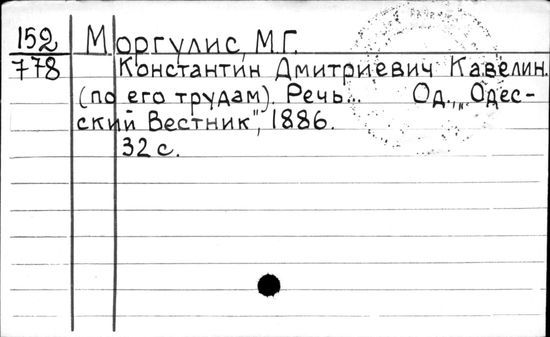 152 Моргулис, М.Г.
778 Константин Дмитриевич Кавелин.
(по его трудам). Речь... Од., „Одес-
ский Вестник", 1886.
32 с.